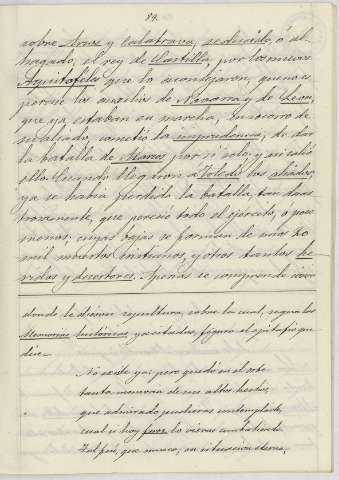 84.
sobre Arcos y Calatrava, seducido, ó al-
hagado, el rey de Castilla, por los nuevos
Aquitofeles que lo aconsejaron, que no es-
perase los auxilios de Navarra y de Leon,
que ya estaban en marcha, en socorro de
su aliado, cometió la imprudencia, de dar
la batalla de Alarcos por sí solo; y así salió
ello. Cuando llegaron a Toledo los aliados,
ya se había perdido la batalla, tan desas-
trosamente, que pereció todo el ejército, ó poco
menos; cuyas bajas se forman de unos 20
mil muertos cristianos, y otros tantos he-
ridos y desertores. Apenas se comprende cómo
donde le dieron sepultura, sobre la cual, segun las
Memorias históricas ya citadas, figura el epitafio que
dice—
No existe ya; pero quedó en el orbe
tanta memoria de sus altos hechos,
que admirado pudieras contemplarle,
cual si hoy fuese lo vieras combatiendo.
Tal fué, que nunca, en situacion eterna,